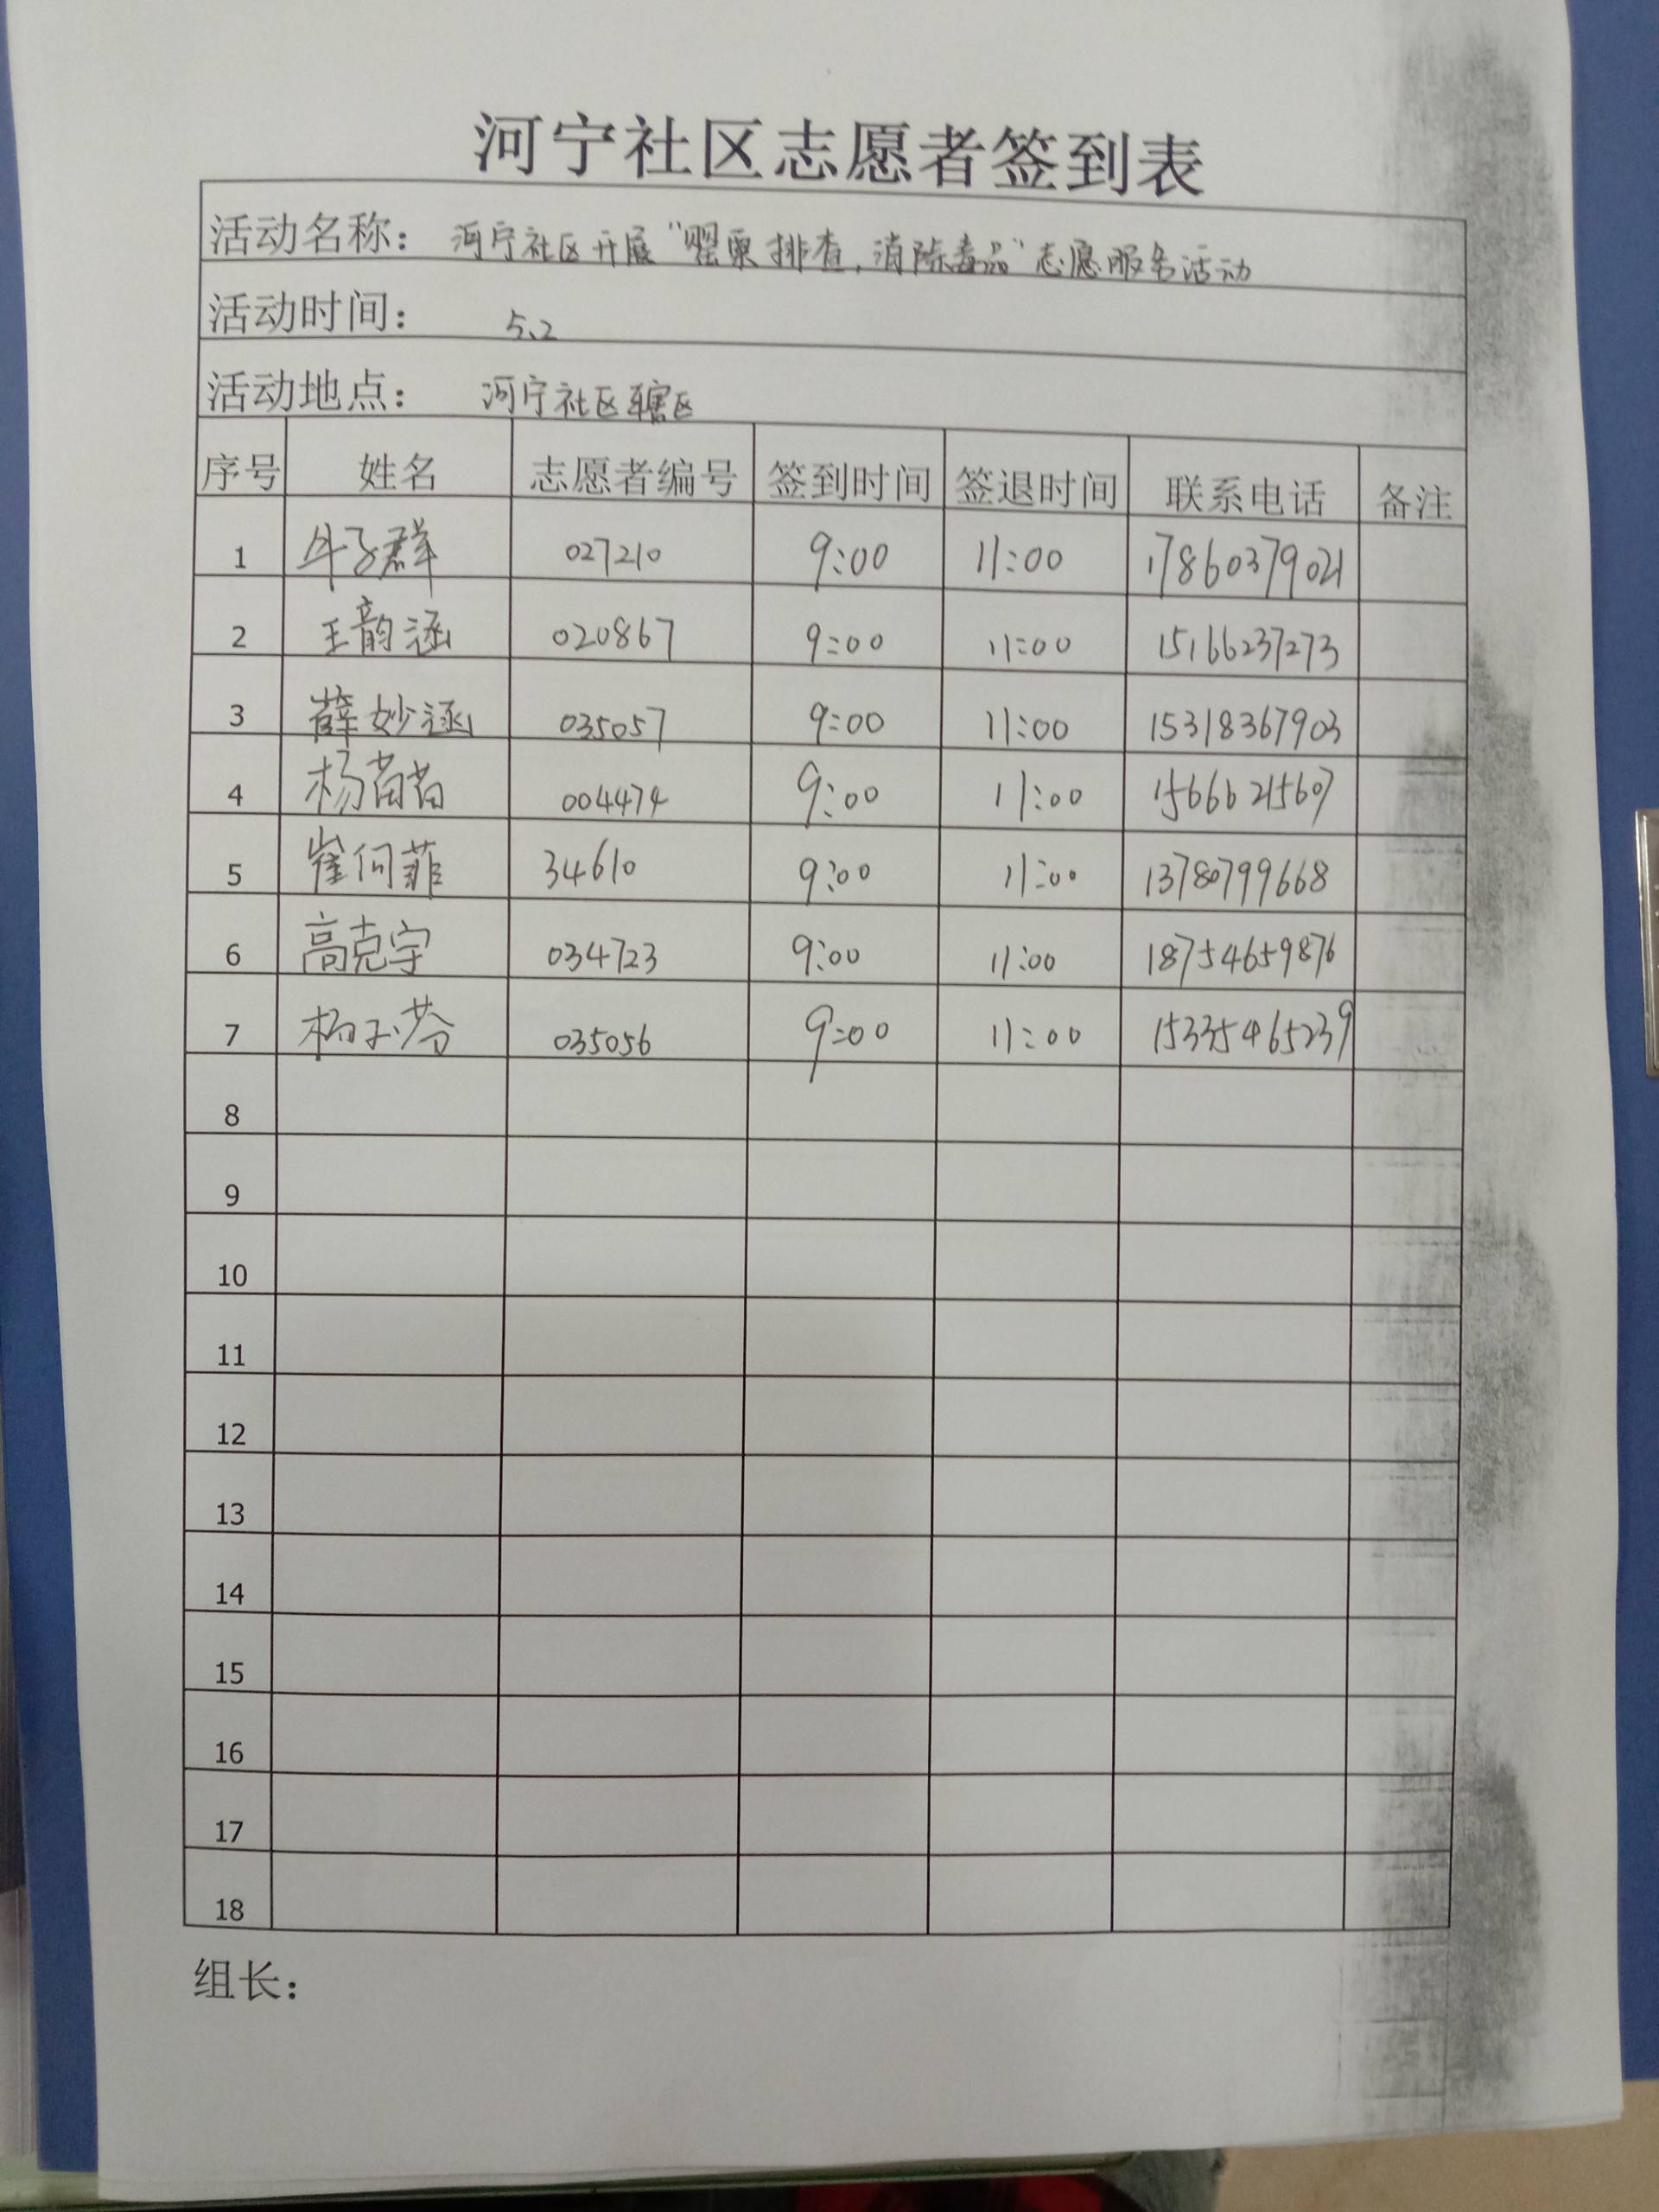 河宁社区志愿者签到表
活动名称： 河宁社区开展“罂粟排查，消除毒品”志愿服务活动
活动时间： 5.2
活动地点： 河宁社区辖区
序号 姓名 志愿者编号 签到时间 签退时间 联系电话 备注
1 牛子群 027210 9:00 11:00 17860379021
2 王韵涵 020867 9:00 11:00 15166237273
3 薛妙涵 035057 9:00 11:00 15318367903
4 杨苗苗 004474 9:00 11:00 15666215607
5 崔何菲 34610 9:00 11:00 13780799668
6 高克宇 034723 9:00 11:00 18754659876
7 杨玉芬 035056 9:00 11:00 15335465239
8
9
10
11
12
13
14
15
16
17
18
组长：